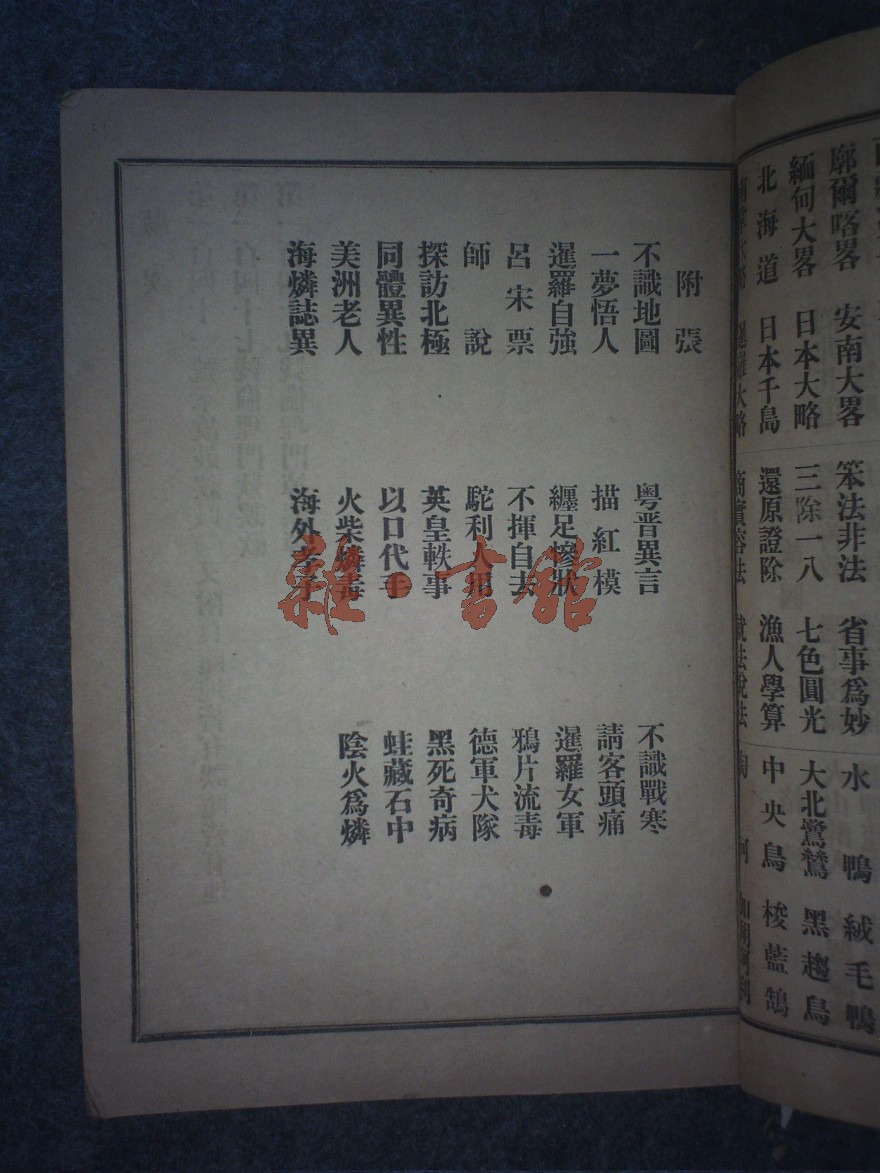 廓爾喀畧　安南大畧　笨法非法　省事爲妙　水鴨　絨毛鴨
緬甸大畧　日本大略　三除一八　七色圓光　大北　黑趨鳥
北海道　日本千島　還原證除　漁人學算　中央鳥　梭藍鵠
暹羅大略
附張
不識地圖　粵晋異言　不識戰寒
一夢悟人　描紅模　請客頭痛
暹羅自強　纏足慘狀　暹羅女軍
呂宋票　不揮自去　鴉片流毒
師說　駝利人用　德軍犬隊
探訪北極　英皇軼事　黑死奇病
同體異性　以口代手　蛙藏石中
美洲老人　火柴燐毒　陰火爲燐
海燐誌異　海外孝子
雜·書館